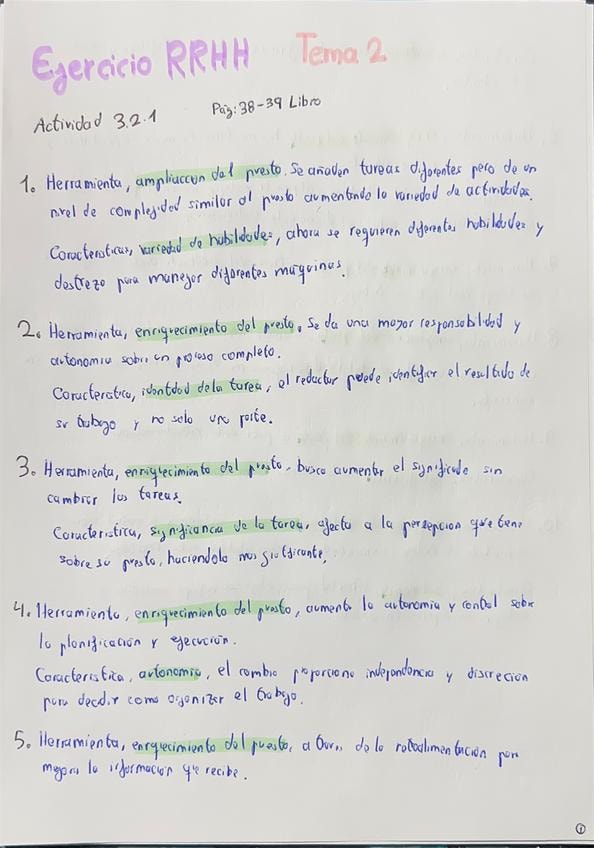 Ejercicio RRHH Tema 2
Actividad 3.2.1 Pag: 38-39 Libro
1. Herramienta, ampliaccion del puesto. Se añaden tareas diferentes pero de un
nivel de complejidad similar al puesto aumentando la variedad de actividades.
Caracteristicas, variedad de habilidades, ahora se requieren diferentes habilidades y
destreza para manejar diferentes maquinas.
2. Herramienta, enriquecimiento del puesto, se da una mayor responsabilidad y
autonomia sobre un proceso completo.
Caracteristica, identidad de la tarea, el redactor puede identificar el resultado de
su trabajo y no solo una parte.
3. Herramienta, enriquecimiento del puesto, busca aumentar el significado sin
cambiar las tareas.
Caracteristica, significancia de la tarea, afecta a la percepcion que tiene
sobre su puesto, haciendolo mas gratificante.
4. Herramienta, enriquecimiento del puesto, aumenta la autonomia y control sobre
la planificación y ejecución.
Caracteristica, autonomia, el cambio proporciona independencia y discrecion
para decidir como organizar el trabajo.
5. Herramienta, enriquecimiento del puesto, a traves de la retroalimentación para
mejorar la informacion que recibe.
1